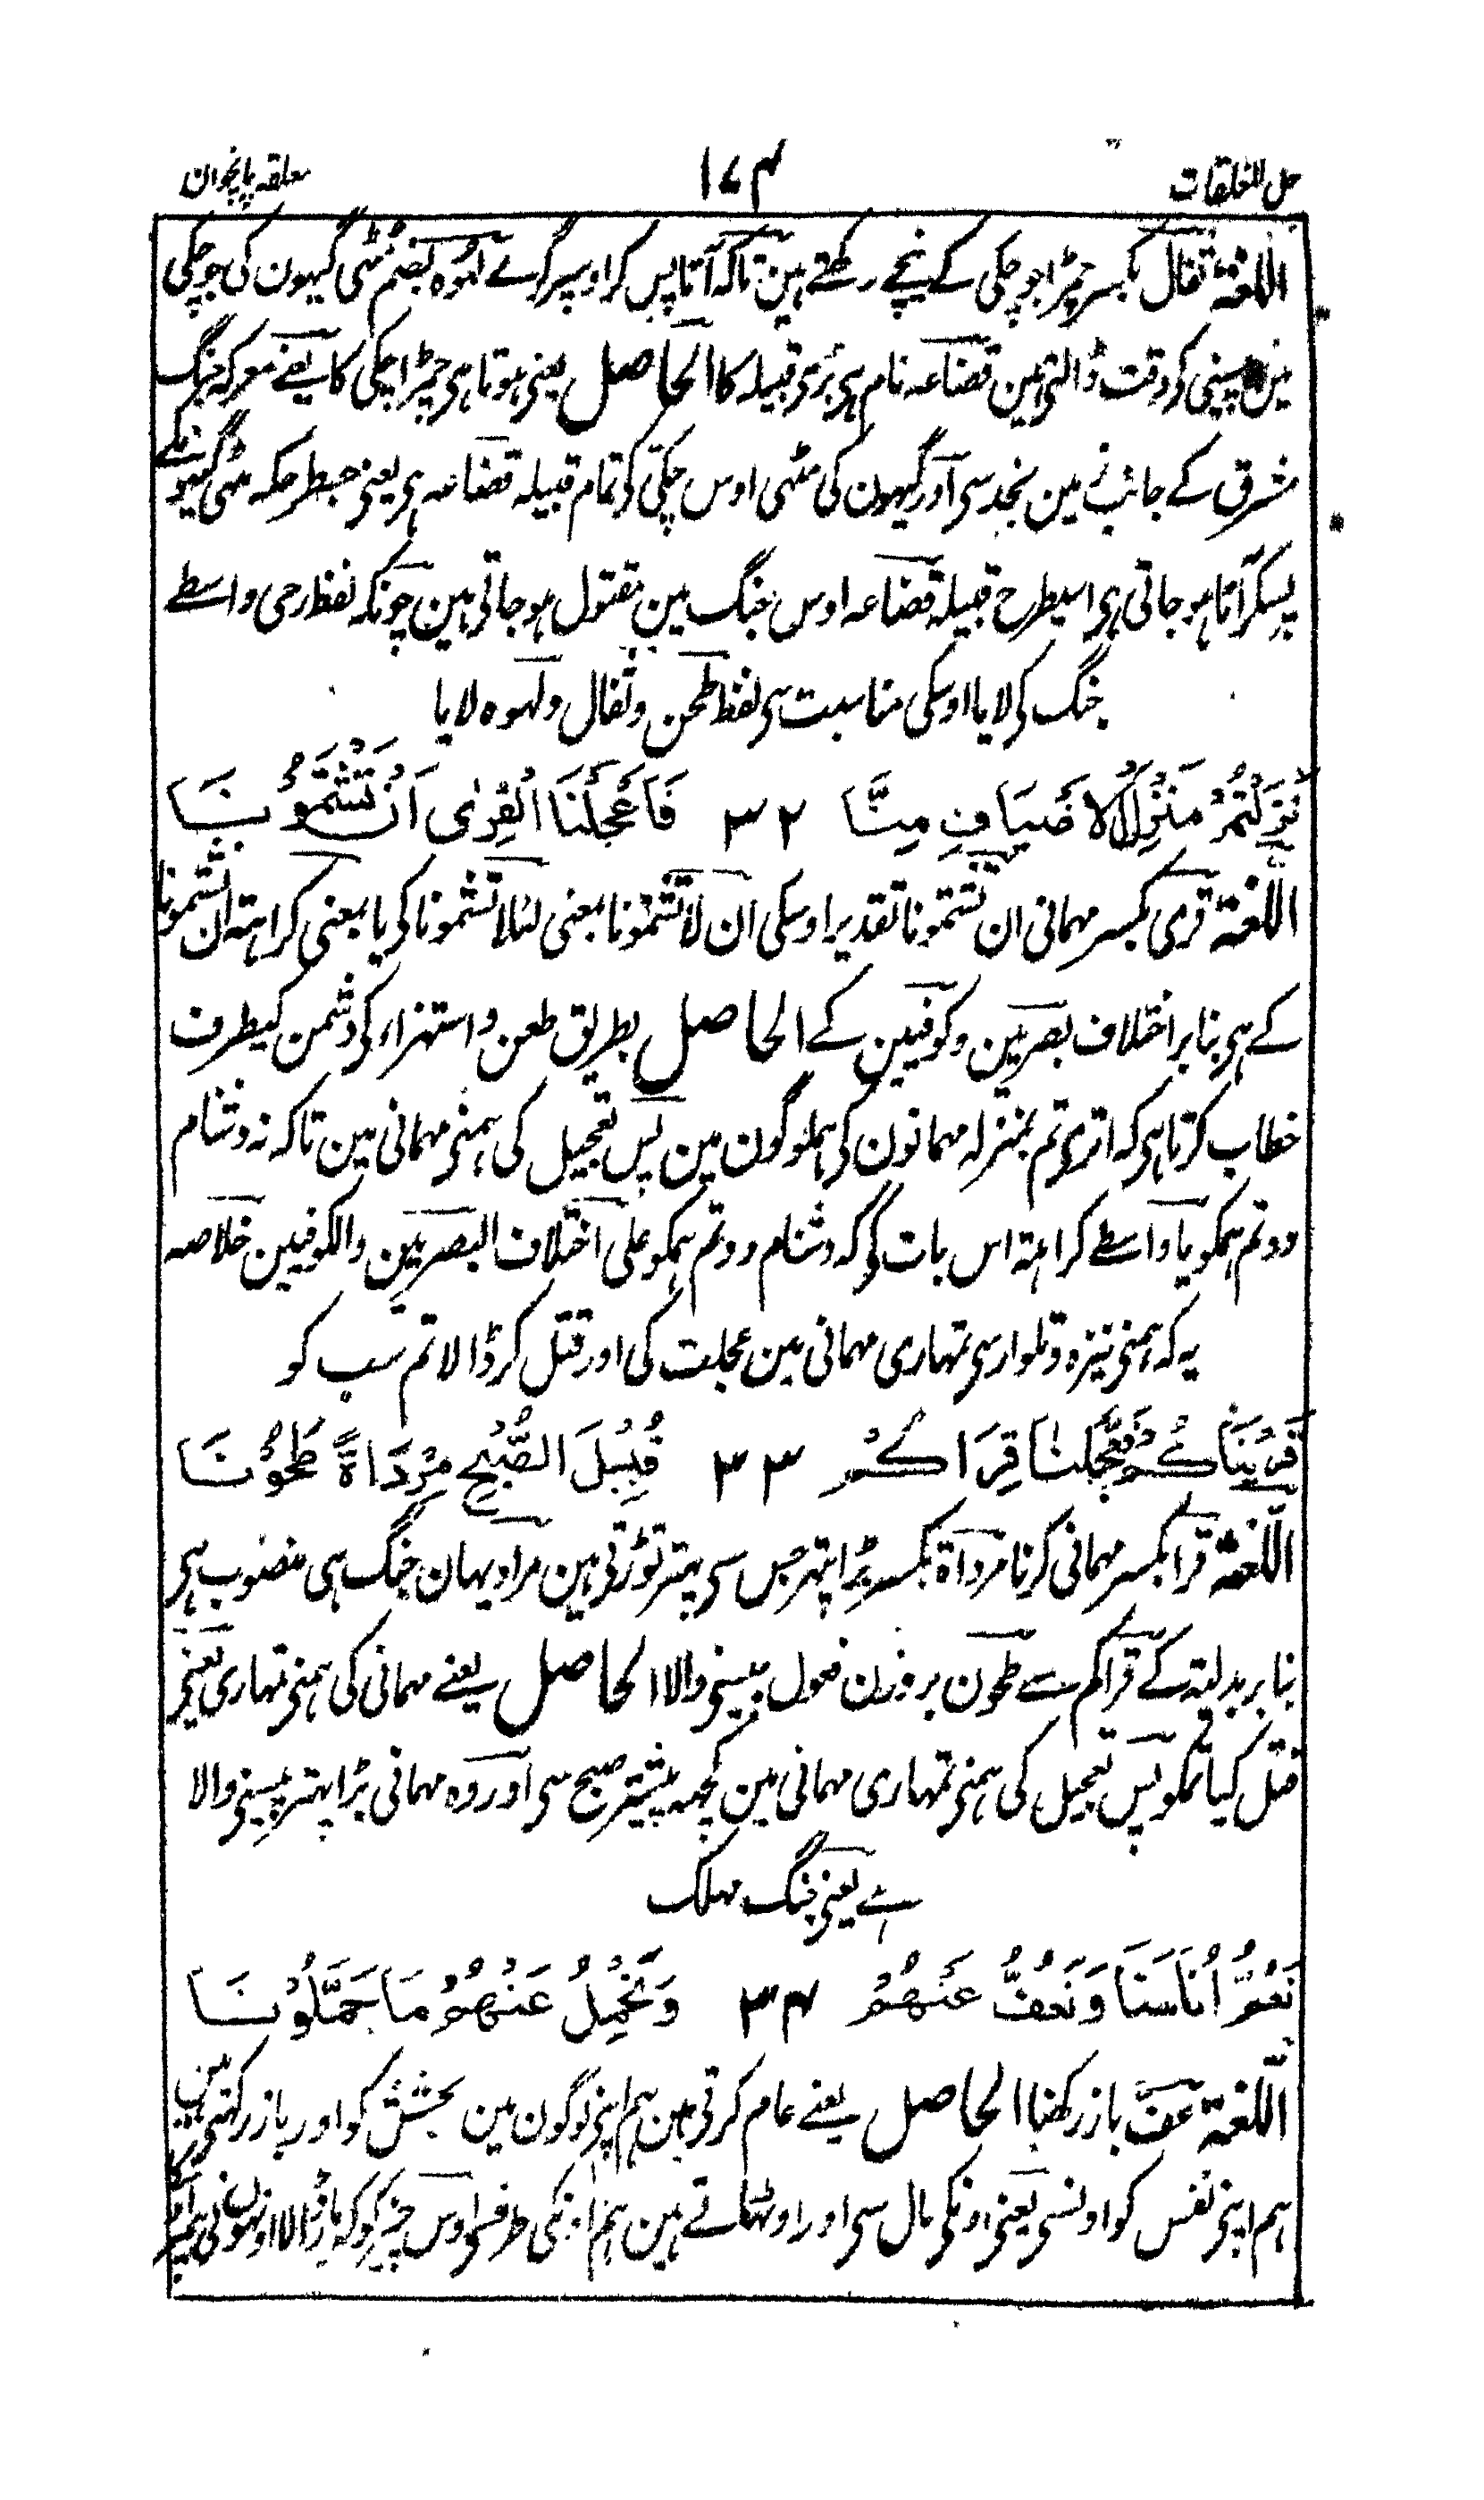 حل المغلقات
۱۷۴
معلقہ پانچوان
اللغۃ ثفال بکسر چمڑا جو چکی کے نیچے رکھتے ہین تاکہ آٹا پس کر اوسپر گرے لہوہ بضم مٹھی گیہون کی جو چکی
مین پیسنی کی وقت ڈالتی ہین قضاعہ نام ہی بڑی قبیلہ کا الحاصل یعنی ہوتا ہی چمڑا چکی کا یعنے معرکہ جنگ
مشرق کے جانب مین نجد سی اور گیہون کی مٹھی اوس چکی کی تمام قبیلہ قضاعہ ہی یعنی جسطرحکہ مٹھی گیہونکے
پسکر آٹا ہو جاتی ہی اسیطرح قبیلہ قضاعہ اوس جنگ مین مقتول ہو جاتی ہین چونکہ لفظ رحی واسطے
جنگ کی لایا اوسکی مناسبت سی لفظ طحن و ثفال و لہوہ لایا
نَزَلْتُمْ مَنْزِلَ الْاَضْیَافِ مِنَّا ۳۲ فَاَعْجَلْنَا الْقِرٰی اَنْ تَشْتِمُوْنَا
اللغۃ قری بکسر مہمانی ان تشتمونا تقدیر اوسکی ان لا تشتمونا بمعنی لئلا تشتمونا کی یا بمعنی کراھتہ ان تشتمونا
کے ہی بنا بر اختلاف بصریین و کوفیین کے الحاصل بطریق طعن و استہزاء کی دشمن کیطرف
خطاب کرتا ہی کہ اتری تم بمنزلہ مہمانون کی ہملوگون مین پس تعجیل کی ہمنی مہمانی مین تاکہ نہ دشنام
دو تم ہمکو یا واسطے کراہتہ اس بات کی کہ دشنام دو تم ہمکو علی اختلاف البصریین والکوفیین خلاصہ
یہ کہ ہمنی نیزہ و تلوار سی تمہاری مہمانی مین عجلت کی اور قتل کر ڈالا تم سب کو
قَرَیْنَاکُمْ فَعَجَّلْنَا قِرَاکُمْ ۳۳ قُبَیْلَ الصُّبْحِ مِرْدَاۃً طَحُوْنَا
اللغۃ قرا بکسر مہمانی کرنا مرداۃ بکسر بڑا پتھر جس سی پتھر توڑتی ہین مراد یہان جنگ ہی منصوب ہی
بنا بر بدلیتہ کے قراکم سے طحون بروزن فعول پیسنی والا الحاصل یعنے مہمانی کی ہمنی تمہاری یعنی
قتل کیا تمکو پس تعجیل کی ہمنی تمہاری مہمانی مین کچھہ پیشتر صبح سی اور وہ مہمانی بڑا پتھر پیسنی والا
ہے یعنی جنگ مہلک
نَعُمُّ اُنَاسَنَا وَنَعِفُّ عَنْهُمْ ۳۴ وَنَحْمِلُ عَنْهُمْ مَا حَمَّلُوْنَا
اللغۃ عف باز رکھنا الحاصل یعنے عام کرتی ہین ہم اپنی لوگون مین بخشش کو اور باز رکھتی ہین
ہم اپنی نفس کو اونسی یعنی اونکی مال سی اور اوٹھاتے ہین ہم اونکی طرفسی اوس چیز کو کہ بار ڈالا اونہون نی ہمپر